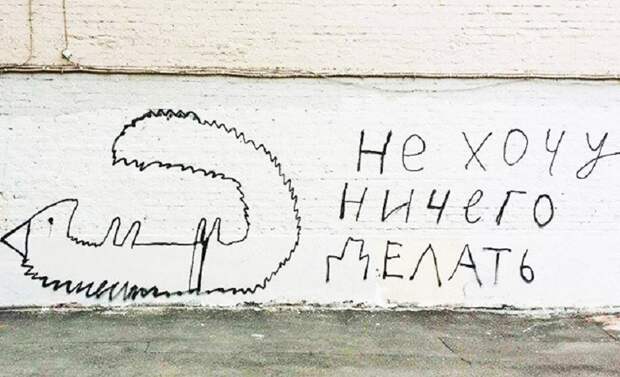 не хочу
ничего
делать